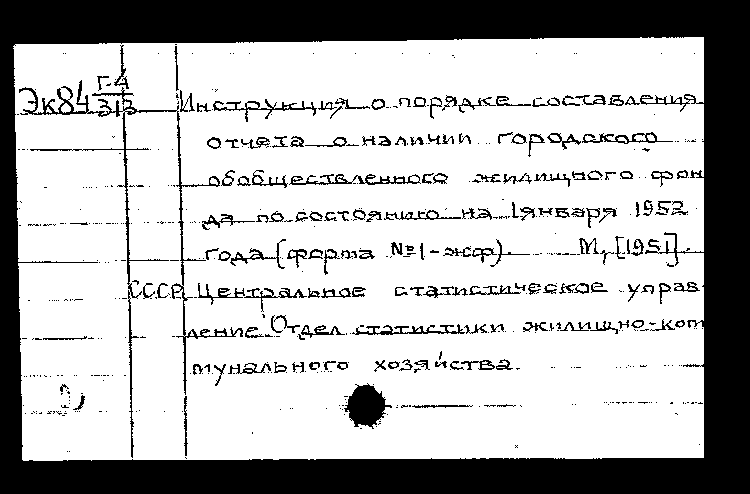 Эк84 Г-4/313 Инструкция о порядке составления
отчета о наличии городского
обобществленного жилищного фон
да по состоянию на 1 января 1952
года (форма №1-жф). М, [1951].
СССР. Центральное статистическое управ-
ление. Отдел статистики жилищно-ком
мунального хозяйства.